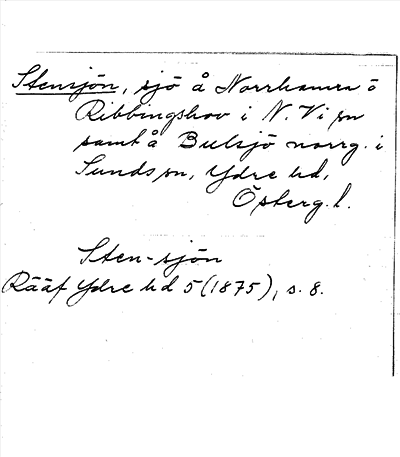 Stensjön, sjö å Norrhamra o
Ribbingshov i N. Vi sn
samt å Bulsjö norrg. i
Sunds sn, Ydre hd,
Österg. l.
Sten-sjön
Rääf Ydre hd 5 (1875), s. 8.